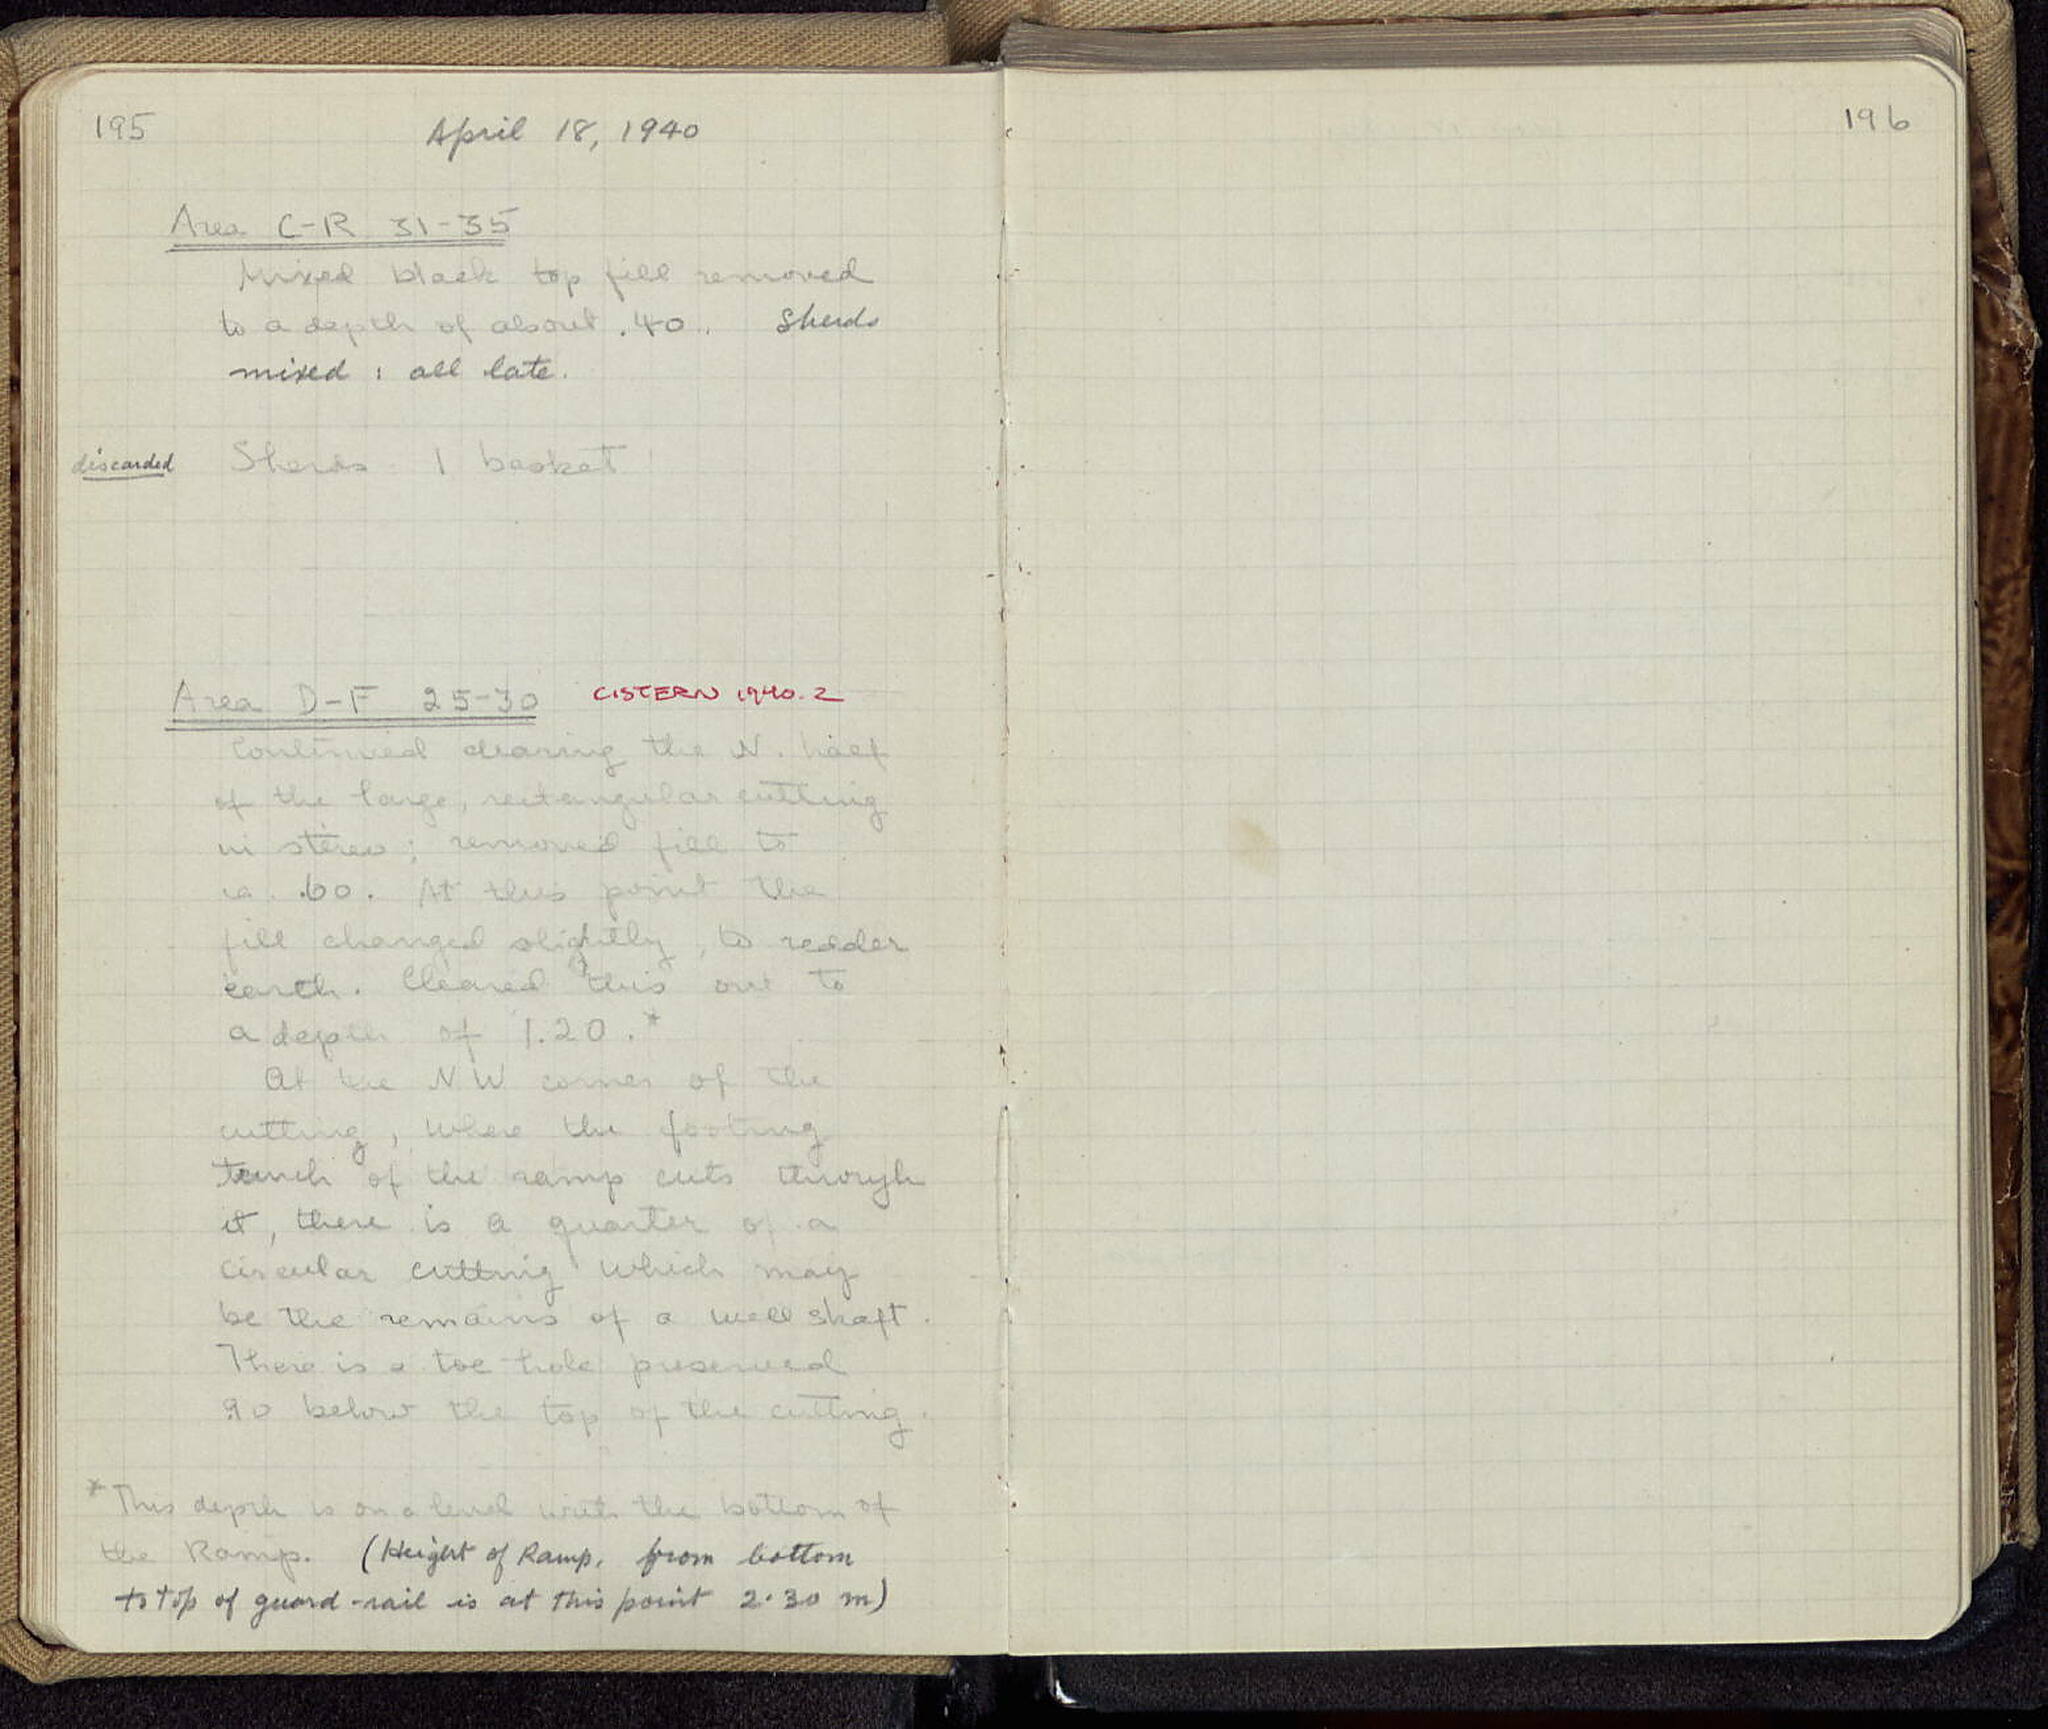 195
April 18, 1940
Area C-R 31-35
Mixed black top fill removed
to a depth of about .40. Sherds
mixed : all late.
discarded Sherds 1 basket
Area D-F 25-30 CISTERN 1940.2
Continued clearing the N. half
of the large, rectangular cutting
in stereo; removed fill to
ca. .60. At this point the
fill changed slightly, to redder
earth. Cleared this out to
a depth of 1.20.*
At the NW corner of the
cutting, where the footing
trench of the ramp cuts through
it, there is a quarter of a
circular cutting which may
be the remains of a well shaft.
There is a toe hole preserved
.90 below the top of the cutting.
* This depth is on a level with the bottom of
the Ramp. (Height of Ramp, from bottom
to top of guard-rail is at this point 2.30 m)
196